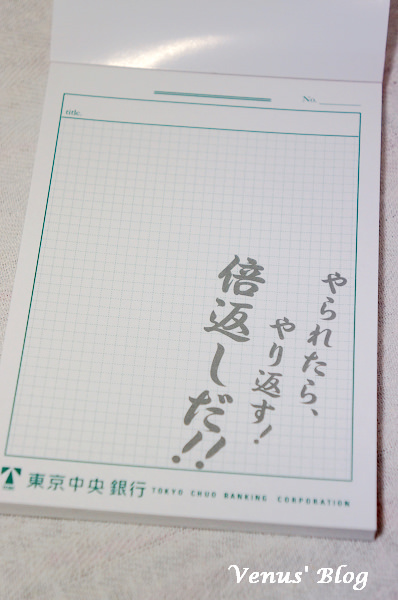 No.
title.
やられたら、
やり返す!
倍返しだ!!
東京中央銀行 TOKYO CHUO BANKING CORPORATION
Venus' Blog